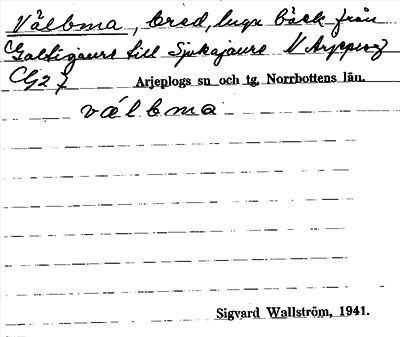 Válbma, bred, lugn bäck från
Galtisjaure till Sjukajaure N Arjeplog
G2
Arjeplogs sn och tg, Norrbottens län.
válbma
Sigvard Wallström, 1941.